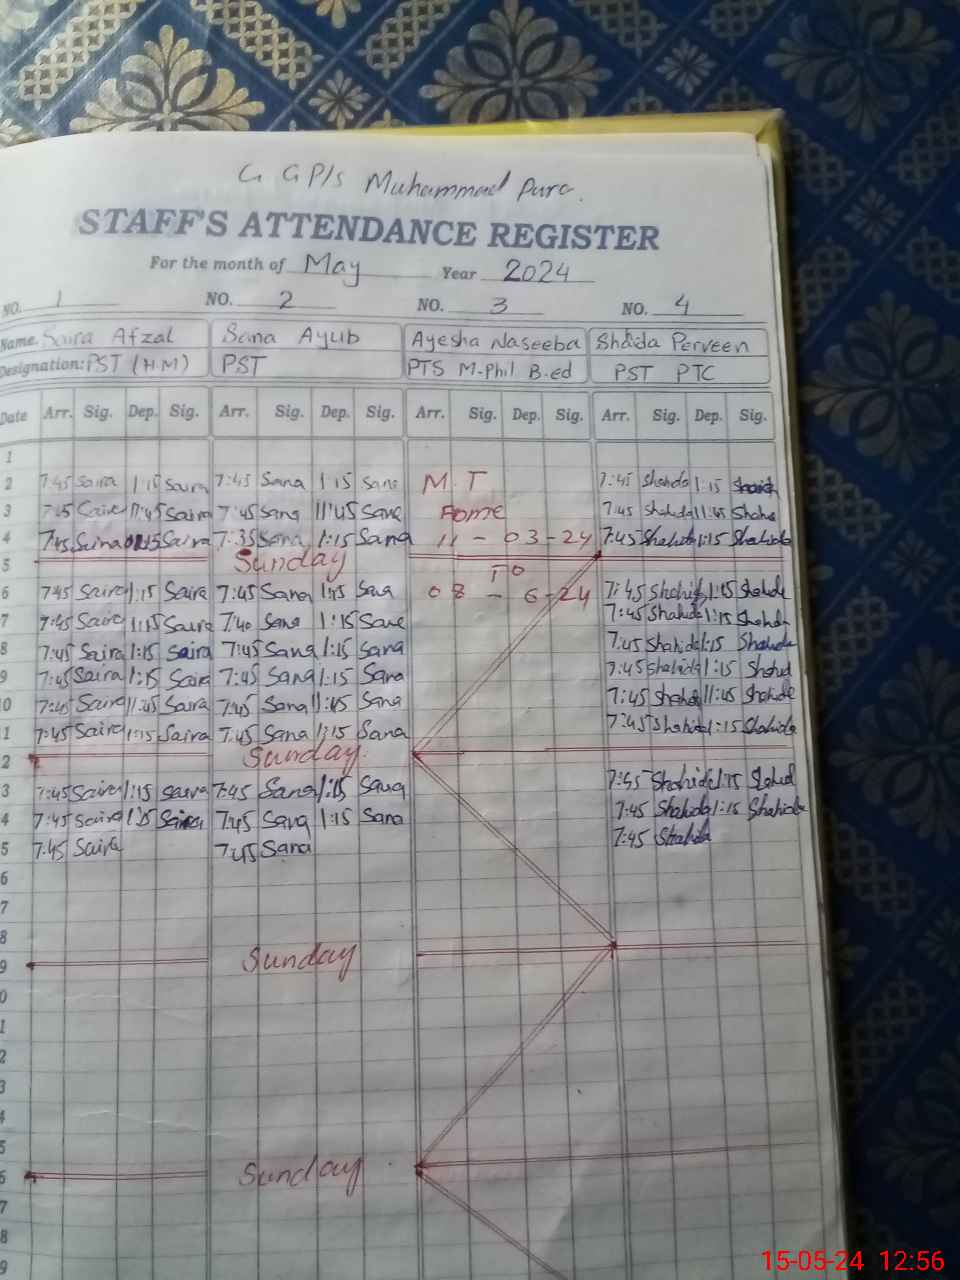 G GP/S Muhammad Pura.
STAFF'S ATTENDANCE REGISTER
For the month of May Year 2024
NO. 1 NO. 2 NO. 3 NO. 4
Name. Saira Afzal Sana Ayub Ayesha Naseeba Shaida Perveen
Designation: PST (H.M) PST PTS M-Phil B.ed PST PTC
Date Arr. Sig. Dep. Sig. Arr. Sig. Dep. Sig. Arr. Sig. Dep. Sig. Arr. Sig. Dep. Sig.
1
2 7:45 Saira 1:15 Saira 7:45 Sana 1:15 Sana M.T 7:45 Shahida 1:15
3 7:45 Saira 11:45 Saira 7:45 Sana 11:45 Sana 7:45 Shahida 11:45 Shahida
4 7:45 Saira Saira 7:35 Sana 1:15 Sana 11-03-24 7:45 Shahida 1:15 Shahida
5 Sunday TO
6 7:45 Saira 1:15 Saira 7:45 Sana 1:15 Sana 08-6-24 7:45 Shahida 1:15 Shahida
7 7:45 Saira 1:15 Saira 7:40 Sana 1:15 Sana 7:45 Shahida 1:15 Shahida
8 7:45 Saira 1:15 Saira 7:45 Sana 1:15 Sana 7:45 Shahida 1:15 Shahida
9 7:45 Saira 1:15 Saira 7:45 Sana 1:15 Sana 7:45 Shahida 1:15 Shahid
0 7:45 Saira 11:45 Saira 7:45 Sana 11:45 Sana 7:45 Shahida 11:45 Shahida
1 7:45 Saira 1:15 Saira 7:45 Sana 1:15 Sana 7:45 Shahida 1:15 Shahida
2 Sunday
3 7:45 Saira 1:15 Saira 7:45 Sana 1:15 Sana 7:45 Shahida 1:15 Shahid
4 7:45 Saira 1:15 Saira 7:45 Sana 1:15 Sana 7:45 Shahida 1:15 Shahida
5 7:45 Saira 7:45 Sana 7:45 Shahida
6
7
8
9 Sunday
0
1
2
3
4
5
6 Sunday
7
8
9
15-05-24 12:56